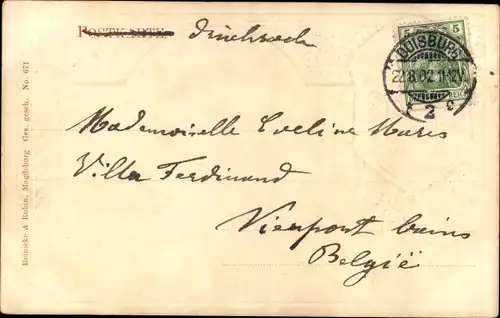 POSTKARTE Drucksache
5 5
DUISBURG
22.8.02.11-12V.
* 2 c
REICH
Mademoiselle Eveline Mares
Villa Ferdinand
Nieuport bains
België
Reinicke & Rubin, Magdeburg Ges. gesch. No. 671